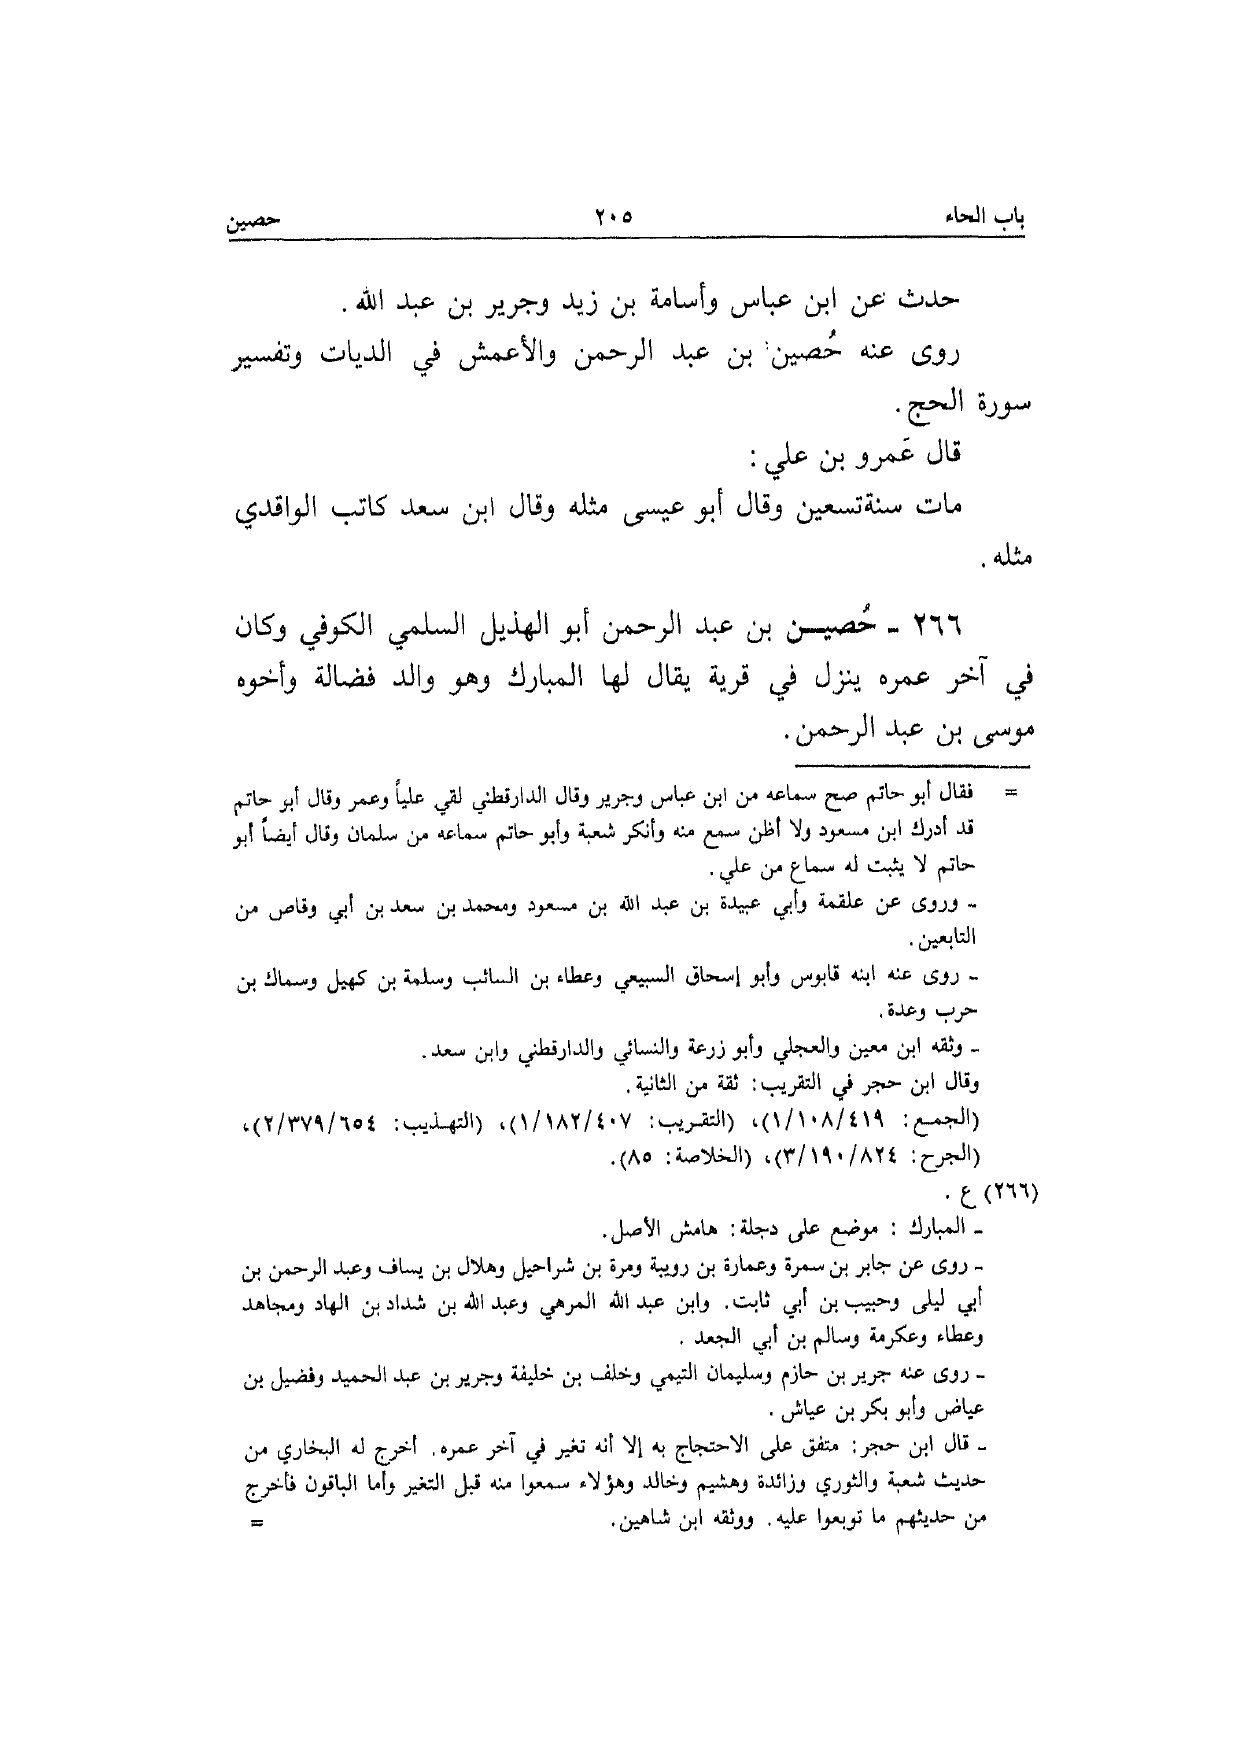 باب الحاء ٢٠٥ حصين
حدث عن ابن عباس وأسامة بن زيد وجرير بن عبد الله .
روى عنه حُصين بن عبد الرحمن والأعمش في الديات وتفسير
سورة الحج .
قال عَمرو بن علي :
مات سنةتسعين وقال أبو عيسى مثله وقال ابن سعد كاتب الواقدي
مثله .
٢٦٦ ـ حُصيـــن بن عبد الرحمن أبو الهذيل السلمي الكوفي وكان
في آخر عمره ينزل في قرية يقال لها المبارك وهو والد فضالة وأخوه
موسى بن عبد الرحمن .
= فقال أبو حاتم صح سماعه من ابن عباس وجرير وقال الدارقطني لقي علياً وعمر وقال أبو حاتم
قد أدرك ابن مسعود ولا أظن سمع منه وأنكر شعبة وأبو حاتم سماعه من سلمان وقال أيضاً أبو
حاتم لا يثبت له سماع من علي .
ـ وروى عن علقمة وأبي عبيدة بن عبد الله بن مسعود ومحمد بن سعد بن أبي وقاص من
التابعين .
ـ روى عنه ابنه قابوس وأبو إسحاق السبيعي وعطاء بن السائب وسلمة بن كهيل وسماك بن
حرب وعدة .
ـ وثقه ابن معين والعجلي وأبو زرعة والنسائي والدارقطني وابن سعد .
وقال ابن حجر في التقريب : ثقة من الثانية .
(الجمـع : ١/١٠٨/٤١٩)، (التقـريب : ١/١٨٢/٤٠٧)، (التهـذيب : ٢/٣٧٩/٦٥٤)،
(الجرح : ٣/١٩٠/٨٢٤)، (الخلاصة : ٨٥).
(٢٦٦) ع .
ـ المبارك : موضع على دجلة : هامش الأصل .
ـ روى عن جابر بن سمرة وعمارة بن رويبة ومرة بن شراحيل وهلال بن يساف وعبد الرحمن بن
أبي ليلى وحبيب بن أبي ثابت . وابن عبد الله المرهي وعبد الله بن شداد بن الهاد ومجاهد
وعطاء وعكرمة وسالم بن أبي الجعد .
ـ روى عنه جرير بن حازم وسليمان التيمي وخلف بن خليفة وجرير بن عبد الحميد وفضيل بن
عياض وأبو بكر بن عياش .
ـ قال ابن حجر : متفق على الاحتجاج به إلا أنه تغير في آخر عمره . أخرج له البخاري من
حديث شعبة والثوري وزائدة وهشيم وخالد وهؤلاء سمعوا منه قبل التغير وأما الباقون فأخرج
من حديثهم ما توبعوا عليه . ووثقه ابن شاهين . =